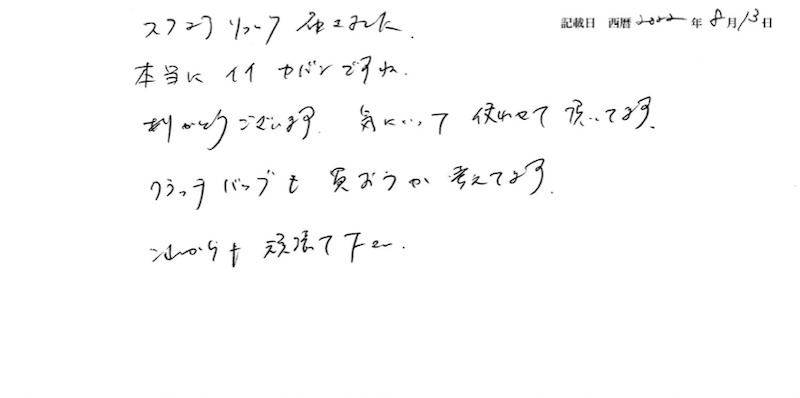 記載日 西暦 2022 年 8月13日
スクエアリュック 届きました.
本当に イイ カバンですね.
ありがとうございます. 気にいって 使わせて 頂いてます.
クラッチバッグも 買おうか 考えてます.
これからも 頑張て下さい.